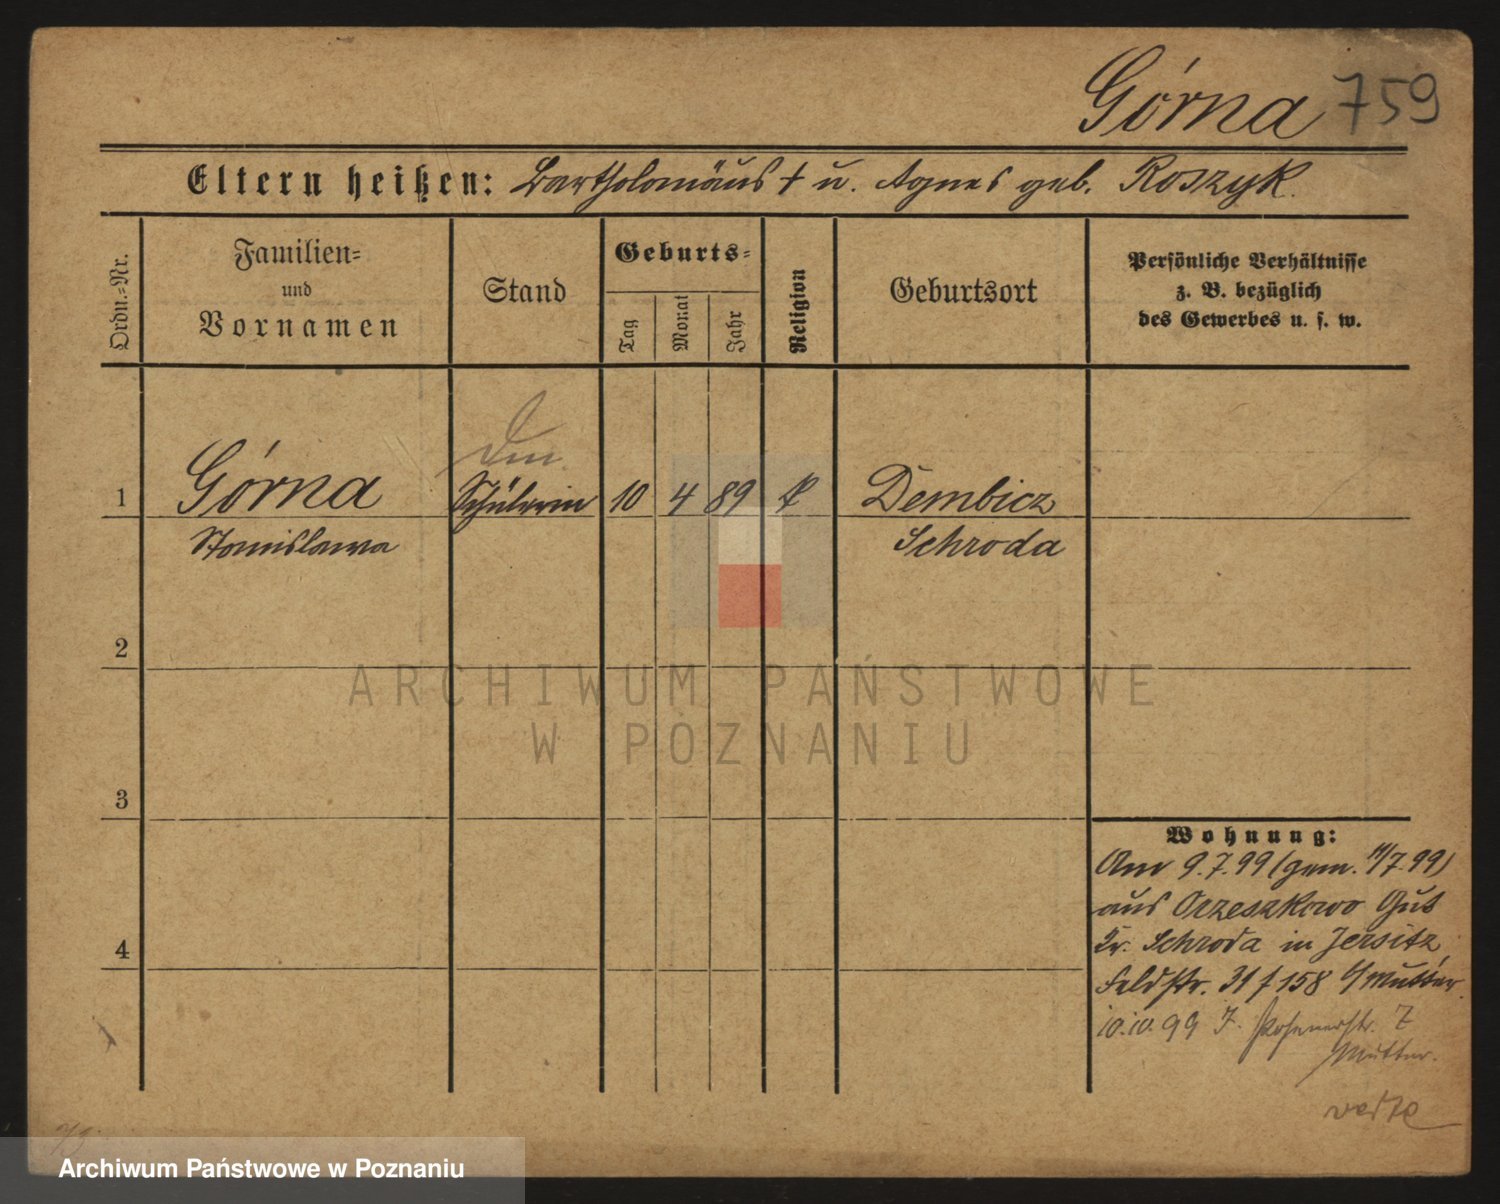 Górna 759
Eltern heißen: Bartholomäus † u. Agnes geb. Roszyk.
Ordn.-Nr.
Familien-
und
Vornamen
Stand
Geburts-
Tag
Monat
Jahr
Religion
Geburtsort
Persönliche Verhältnisse
z. B. bezüglich
des Gewerbes u. s. w.
1 Górna Schülerin 10 4 89 Dembicz
Stanislawa Schroda
2
3
4
Wohnung:
Am 9.7.99 (gem. 11/7.99)
aus Orzeszkowo Gut
Kr. Schroda in Jersitz
Feldstr. 31 f 158 b/Mutter
10.10.99 J. Posenerstr. 7
Mutter.
verte
ARCHIWUM PAŃSTWOWE
W POZNANIU
Archiwum Państwowe w Poznaniu